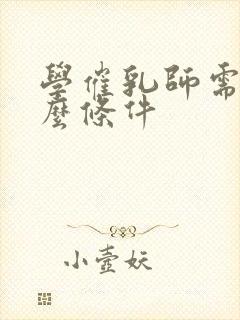 學催乳師需
麼條件
小壺妖